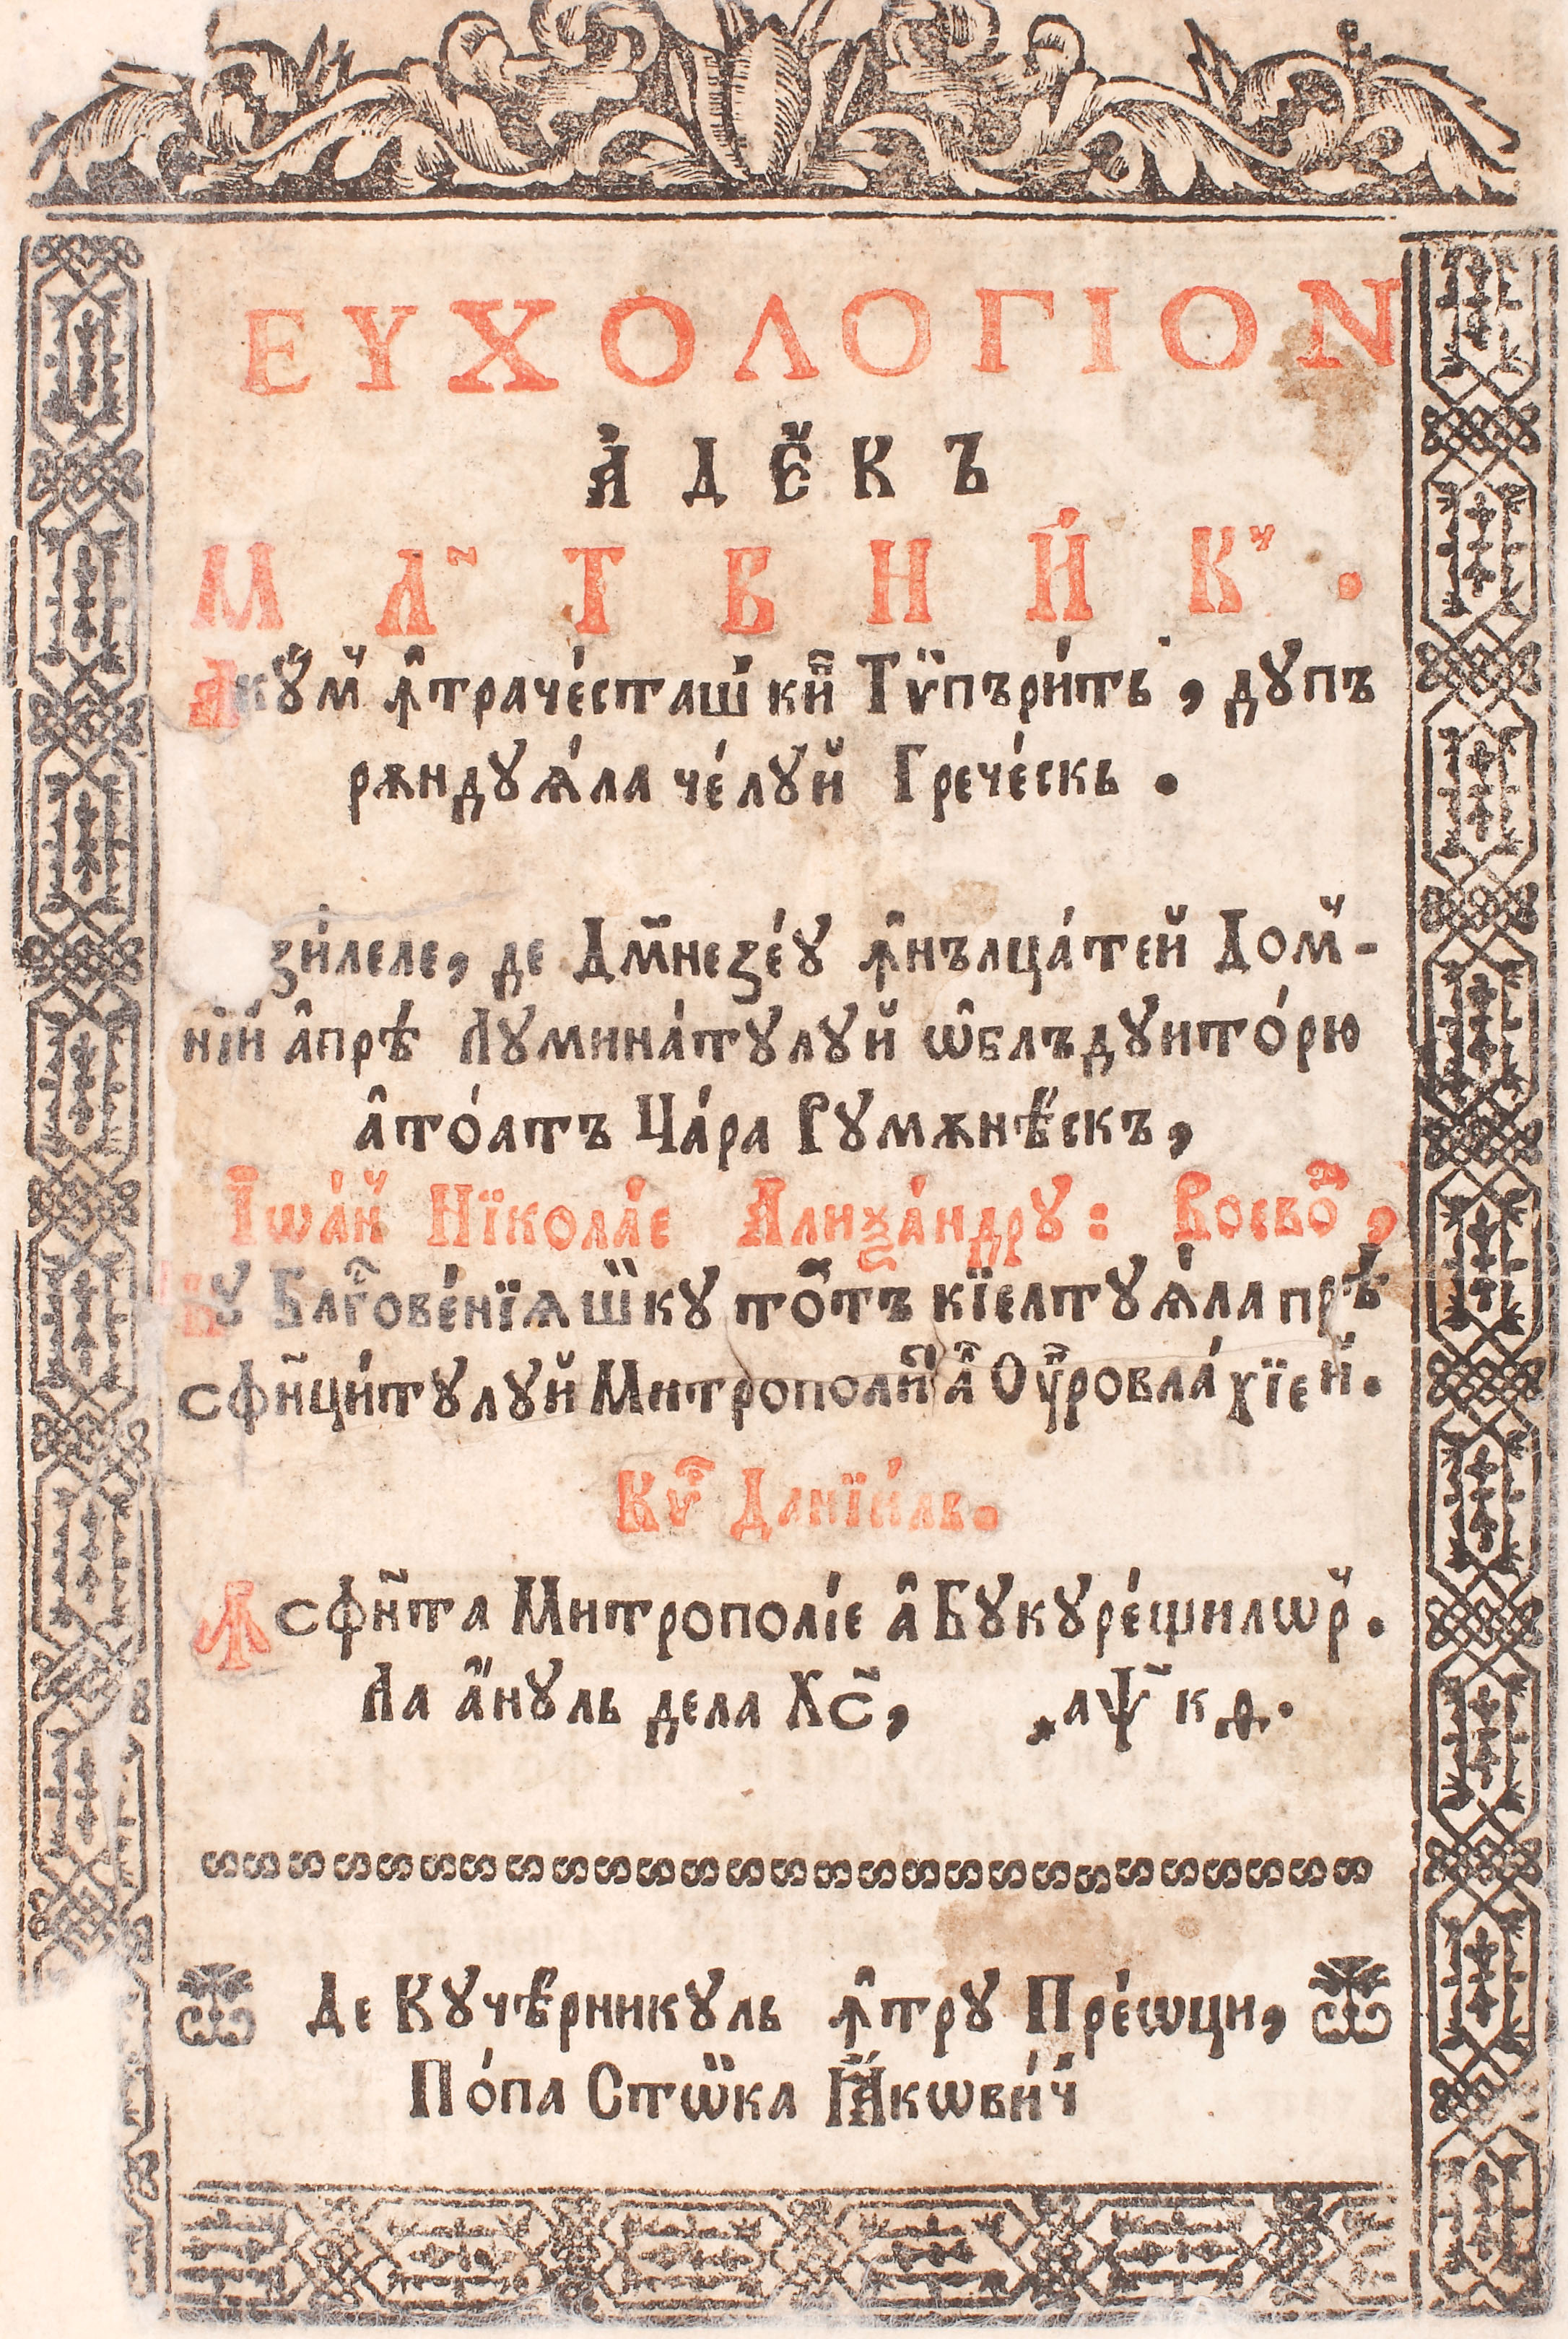 ΕΥΧΟΛΟΓΙΟΝ
А҆ДЕ҆КЪ
МЛ҃ТВНИ́Кꙋ.
Акꙋ́м ꙟ҆траче́сташ ки́п Тѷпъри́ть, дꙋпъ
рѫндꙋѧ́ла че́лꙋй Грече́скъ.
зи́леле, де Дм҃незе́ꙋ ꙟ҆нълца́тей Дом-
нїи́ а҆прѣ́ Лꙋмина́тꙋлꙋй ѡ҆блъдꙋито́рю
а҆то́атъ Ца́ра Рꙋмѫнѣ́скъ,
І҆ѡа́н Нїкола́е Алиѯа́ндрꙋ: Воево́д,
Кꙋ Блгⷭ҇ове́нїѧ ши кꙋ то́тъ кїелтꙋѧ́ла прѣ
сфн҃ци́тꙋлꙋй Митрополи́т а҆ Оу҆гровла́хїей.
Кѵⷬ҇ Данїи́лъ.
Ꙟ сфн҃та Митрополі́е а҆ Бꙋкꙋре́щилѡр.
Ла а҆́нꙋль дела Хс҃, ҂аѱ҃кд.
Де Кꙋчѣ́рникꙋль ꙟ҆трꙋ Пре́ѡци,
По́па Стѡ́йка Ꙗ҆́кѡви́ч